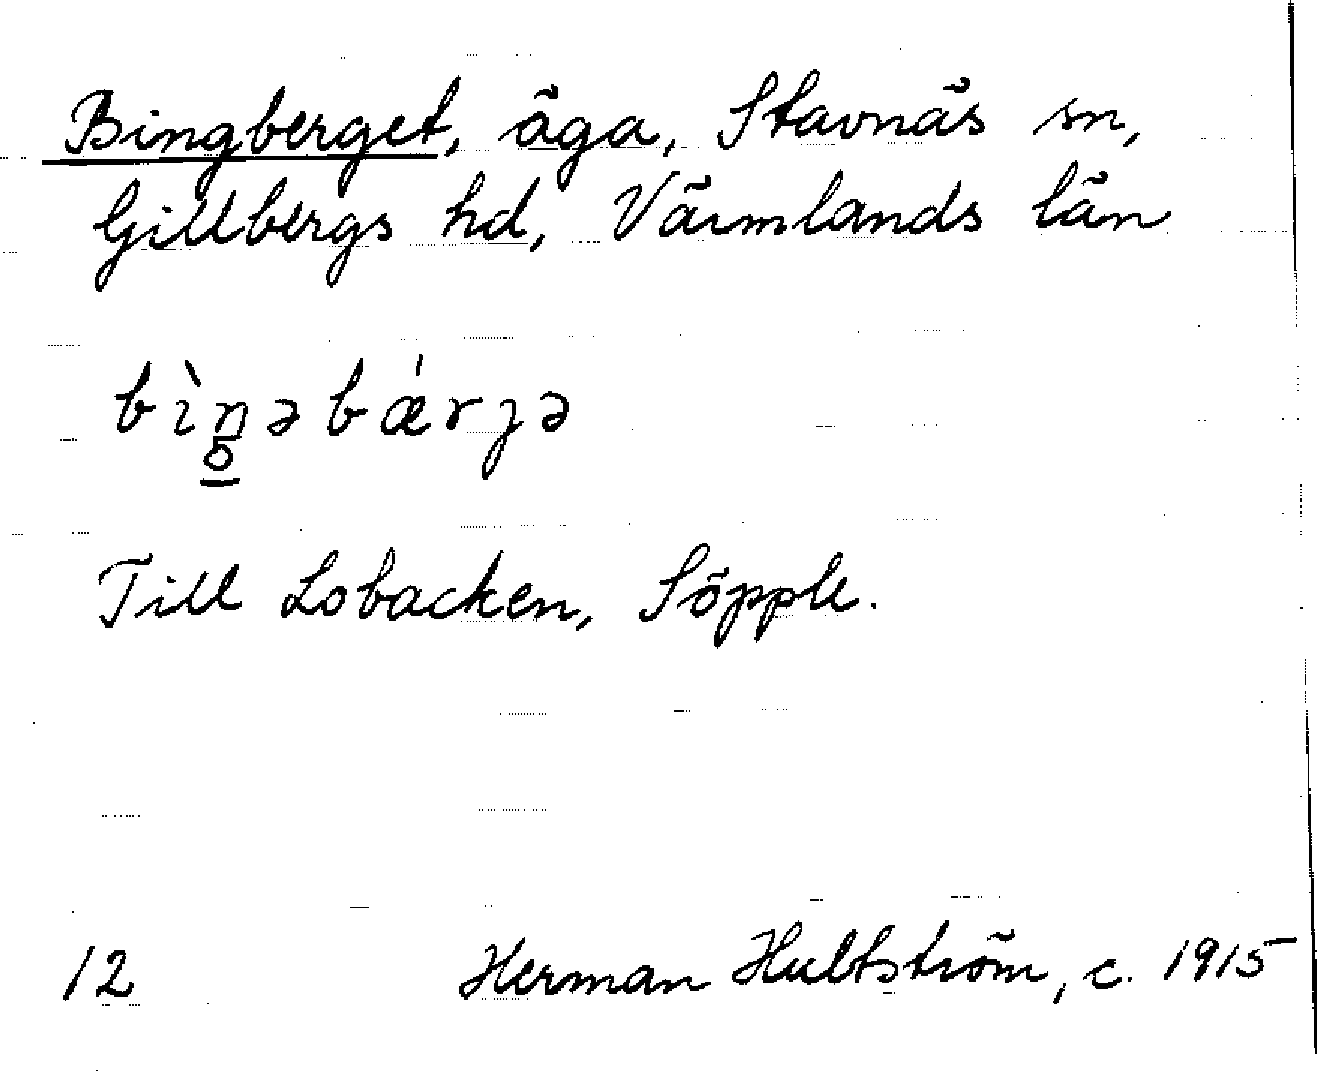 Bingberget, äga, Stavnäs sn,
Gillbergs hd, Värmlands län
bìŋəbǽrɟə
Till Lobacken, Söpple.
12 Herman Hultström, c. 1915